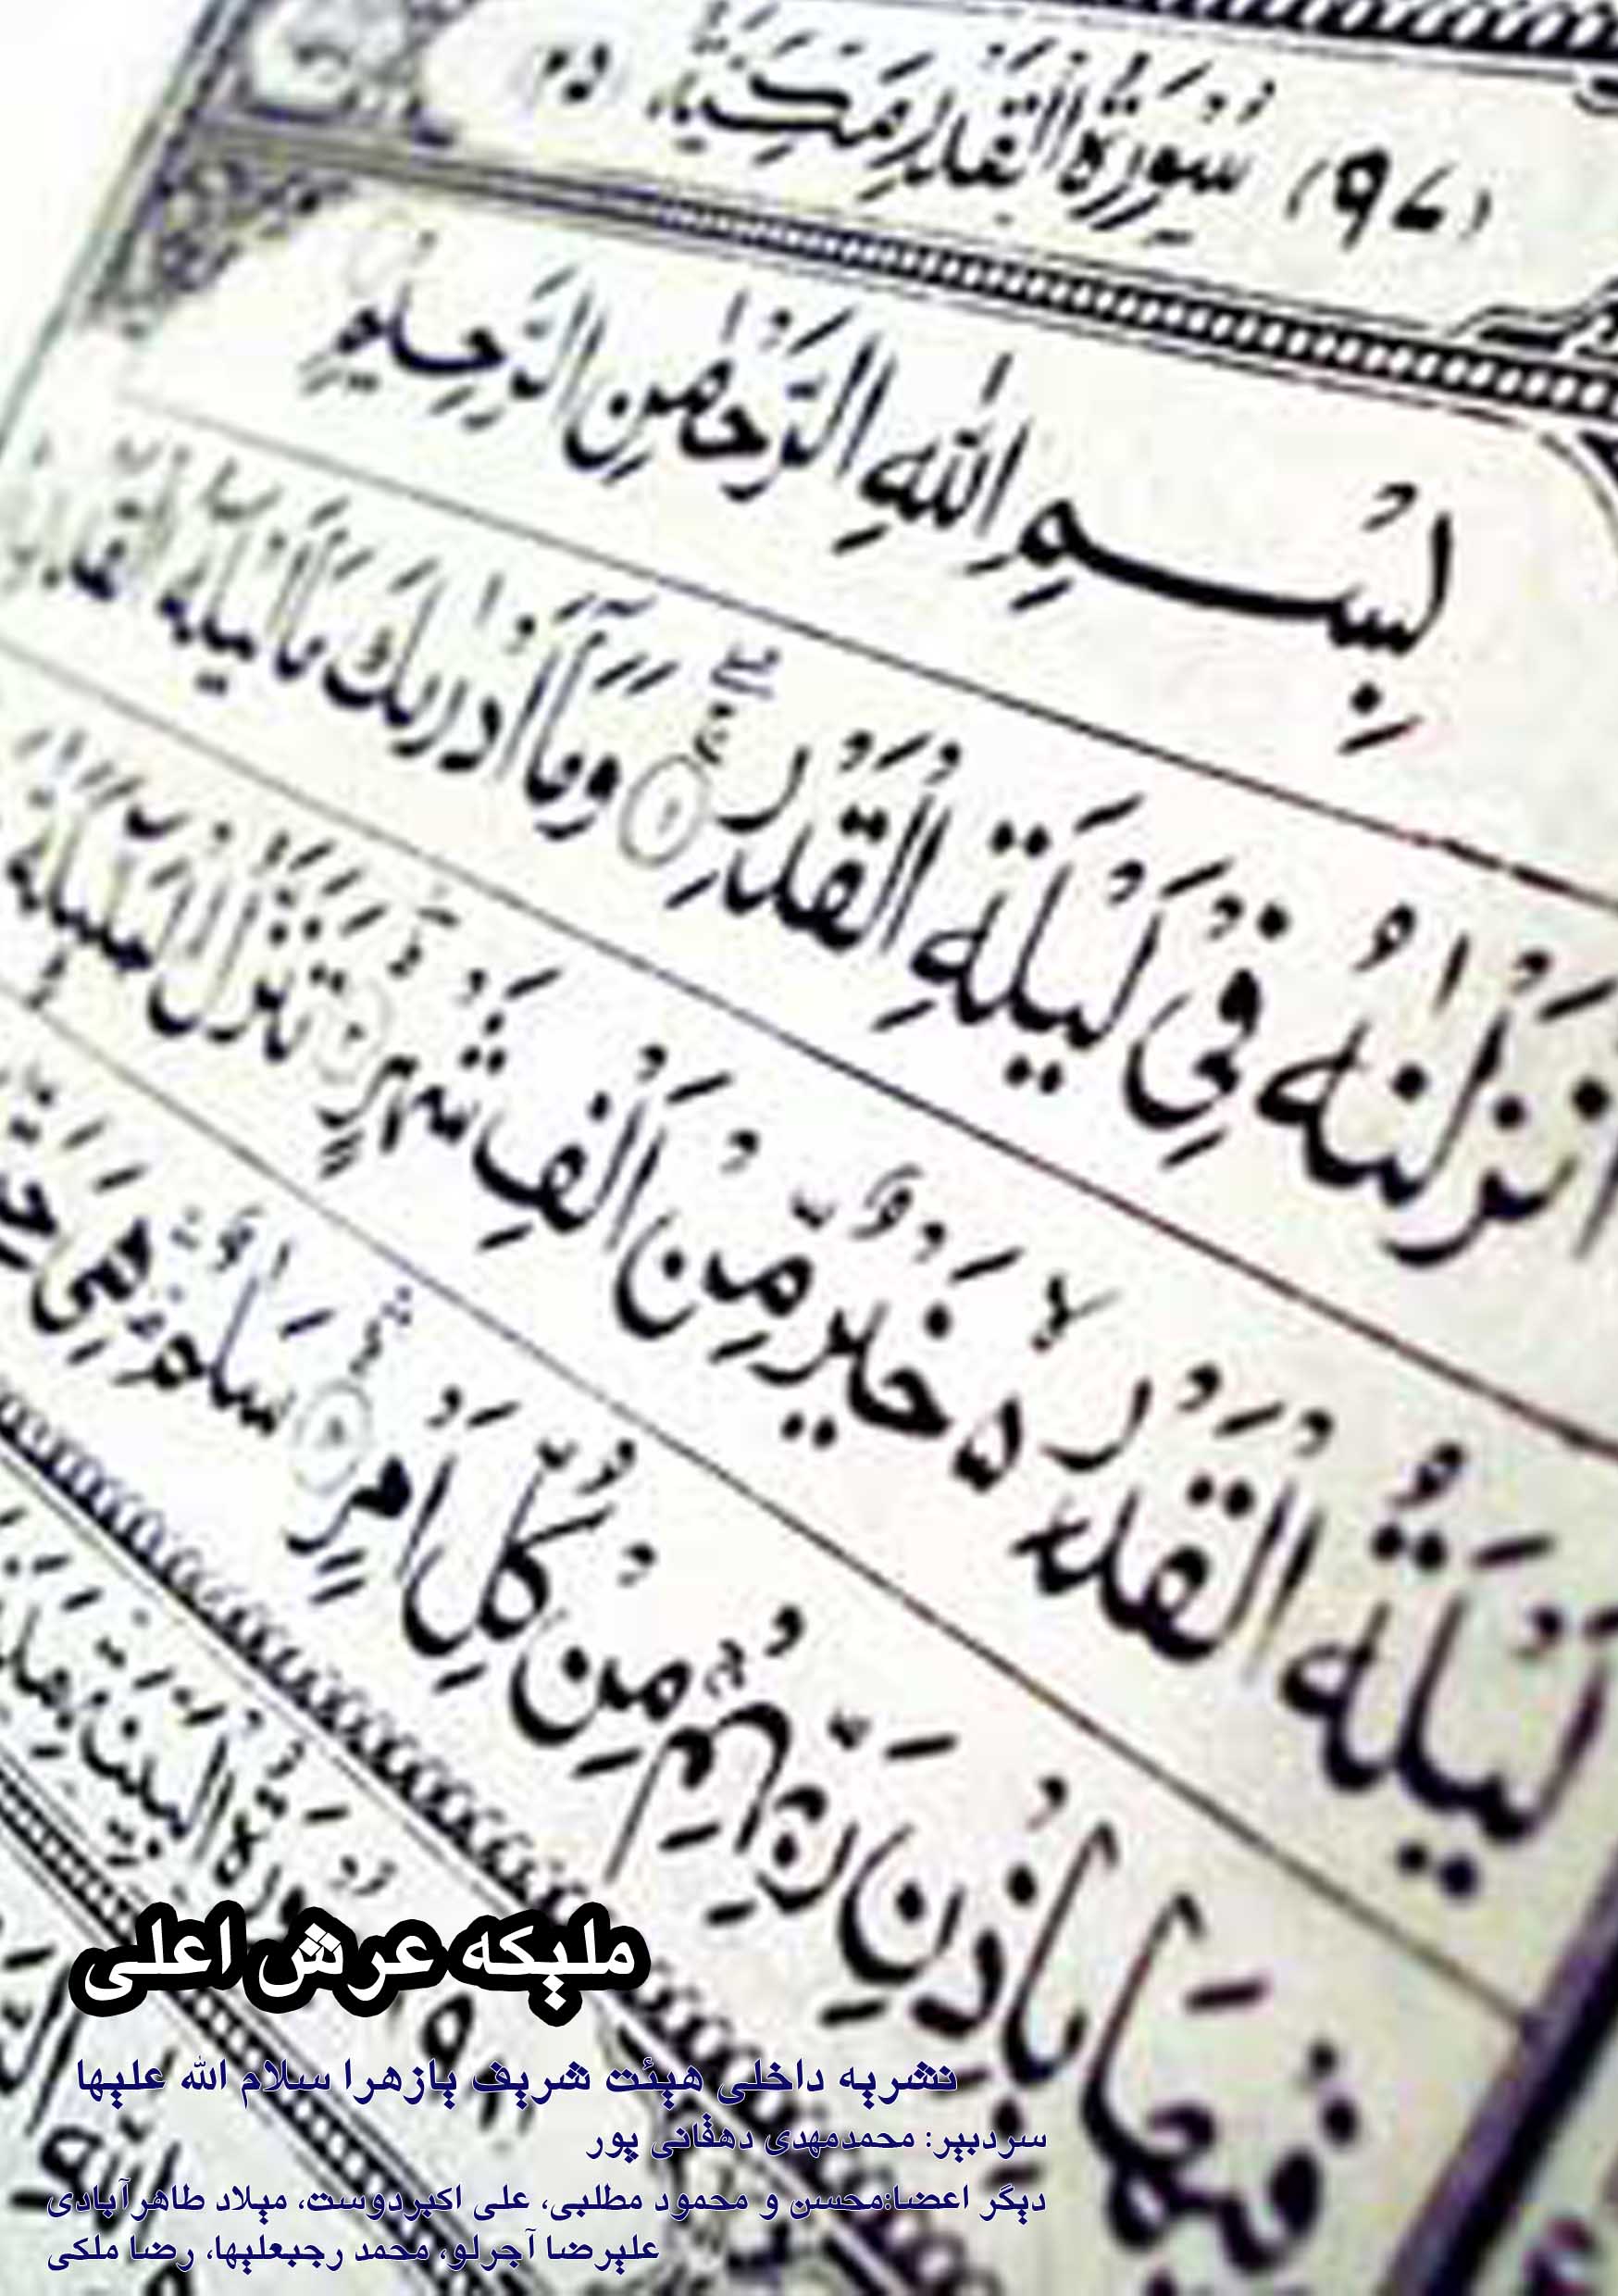 (٩٧) سُوْرَةُ الْقَدْرِ مَكِّيَّةٌ ٢٥
بِسْمِ اللهِ الرَّحْمٰنِ الرَّحِيْمِ
اَنْزَلْنٰهُ فِيْ لَيْلَةِ الْقَدْرِ ۝١ وَمَآ اَدْرٰىكَ مَا لَيْلَةُ الْقَدْرِ
لَيْلَةُ الْقَدْرِ ۙ خَيْرٌ مِّنْ اَلْفِ شَهْرٍ ۝ تَنَزَّلُ الْمَلٰٓئِكَةُ
فِيْهَا بِاِذْنِ رَبِّهِمْ مِنْ كُلِّ اَمْرٍ ۝ سَلٰمٌ هِيَ
سُوْرَةُ الْبَيِّنَةِ
ملیکه عرش اعلی
نشریه داخلی هیئت شریف یازهرا سلام الله علیها
سردبیر: محمدمهدی دهقانی پور
دیگر اعضا:محسن و محمود مطلبی، علی اکبردوست، میلاد طاهرآبادی
علیرضا آجرلو، محمد رجبعلیها، رضا ملکی